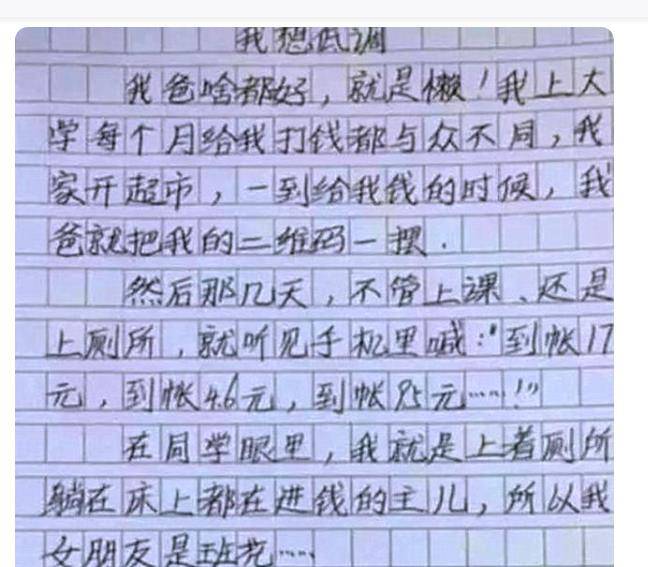 我想低调
我爸啥都好，就是懒！我上大
学每个月给我打钱都与众不同，我
家开超市，一到给我钱的时候，我
爸就把我的二维码一摆．
然后那几天，不管上课、还是
上厕所，就听见手机里喊："到帐17
元，到帐4.6元，到帐95元……！"
在同学眼里，我就是上着厕所
躺在床上都在进钱的主儿，所以我
女朋友是班花……